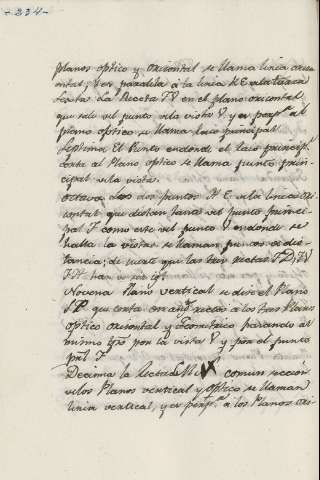 -234-
planos optico y orisontal se llama linea oriso
ontal; y es paralela á la linea
Sexta La Recta TV en el plano orisontal
que sale del punto dela vista V y es perp.r al
plano optico se llama laco principal
Septima El Punto endonde el laco princip.l
corta al Plano optico se llama punto prin-
cipal dela vista.
octava Los dos puntos H. E dela linea oris
ontal que distan tanto del punto princi-
pal T como este del punto V endonde se
halla la vista se llaman puntos de dis-
tancia; de suerte que las tres rectas
TH han de ser ig.s
Novena Plano vertical se dise el Plano
SP que corta en ang.s rectos à los tres Planos
optico orisontal y Geometrico pasando al
mismo tpo por la vista V y por el punto
pal T
Decima la Recta comun seccion
delos Planos vertical y optico se llama
linia vertical, y es perp.r a los Planos ori-